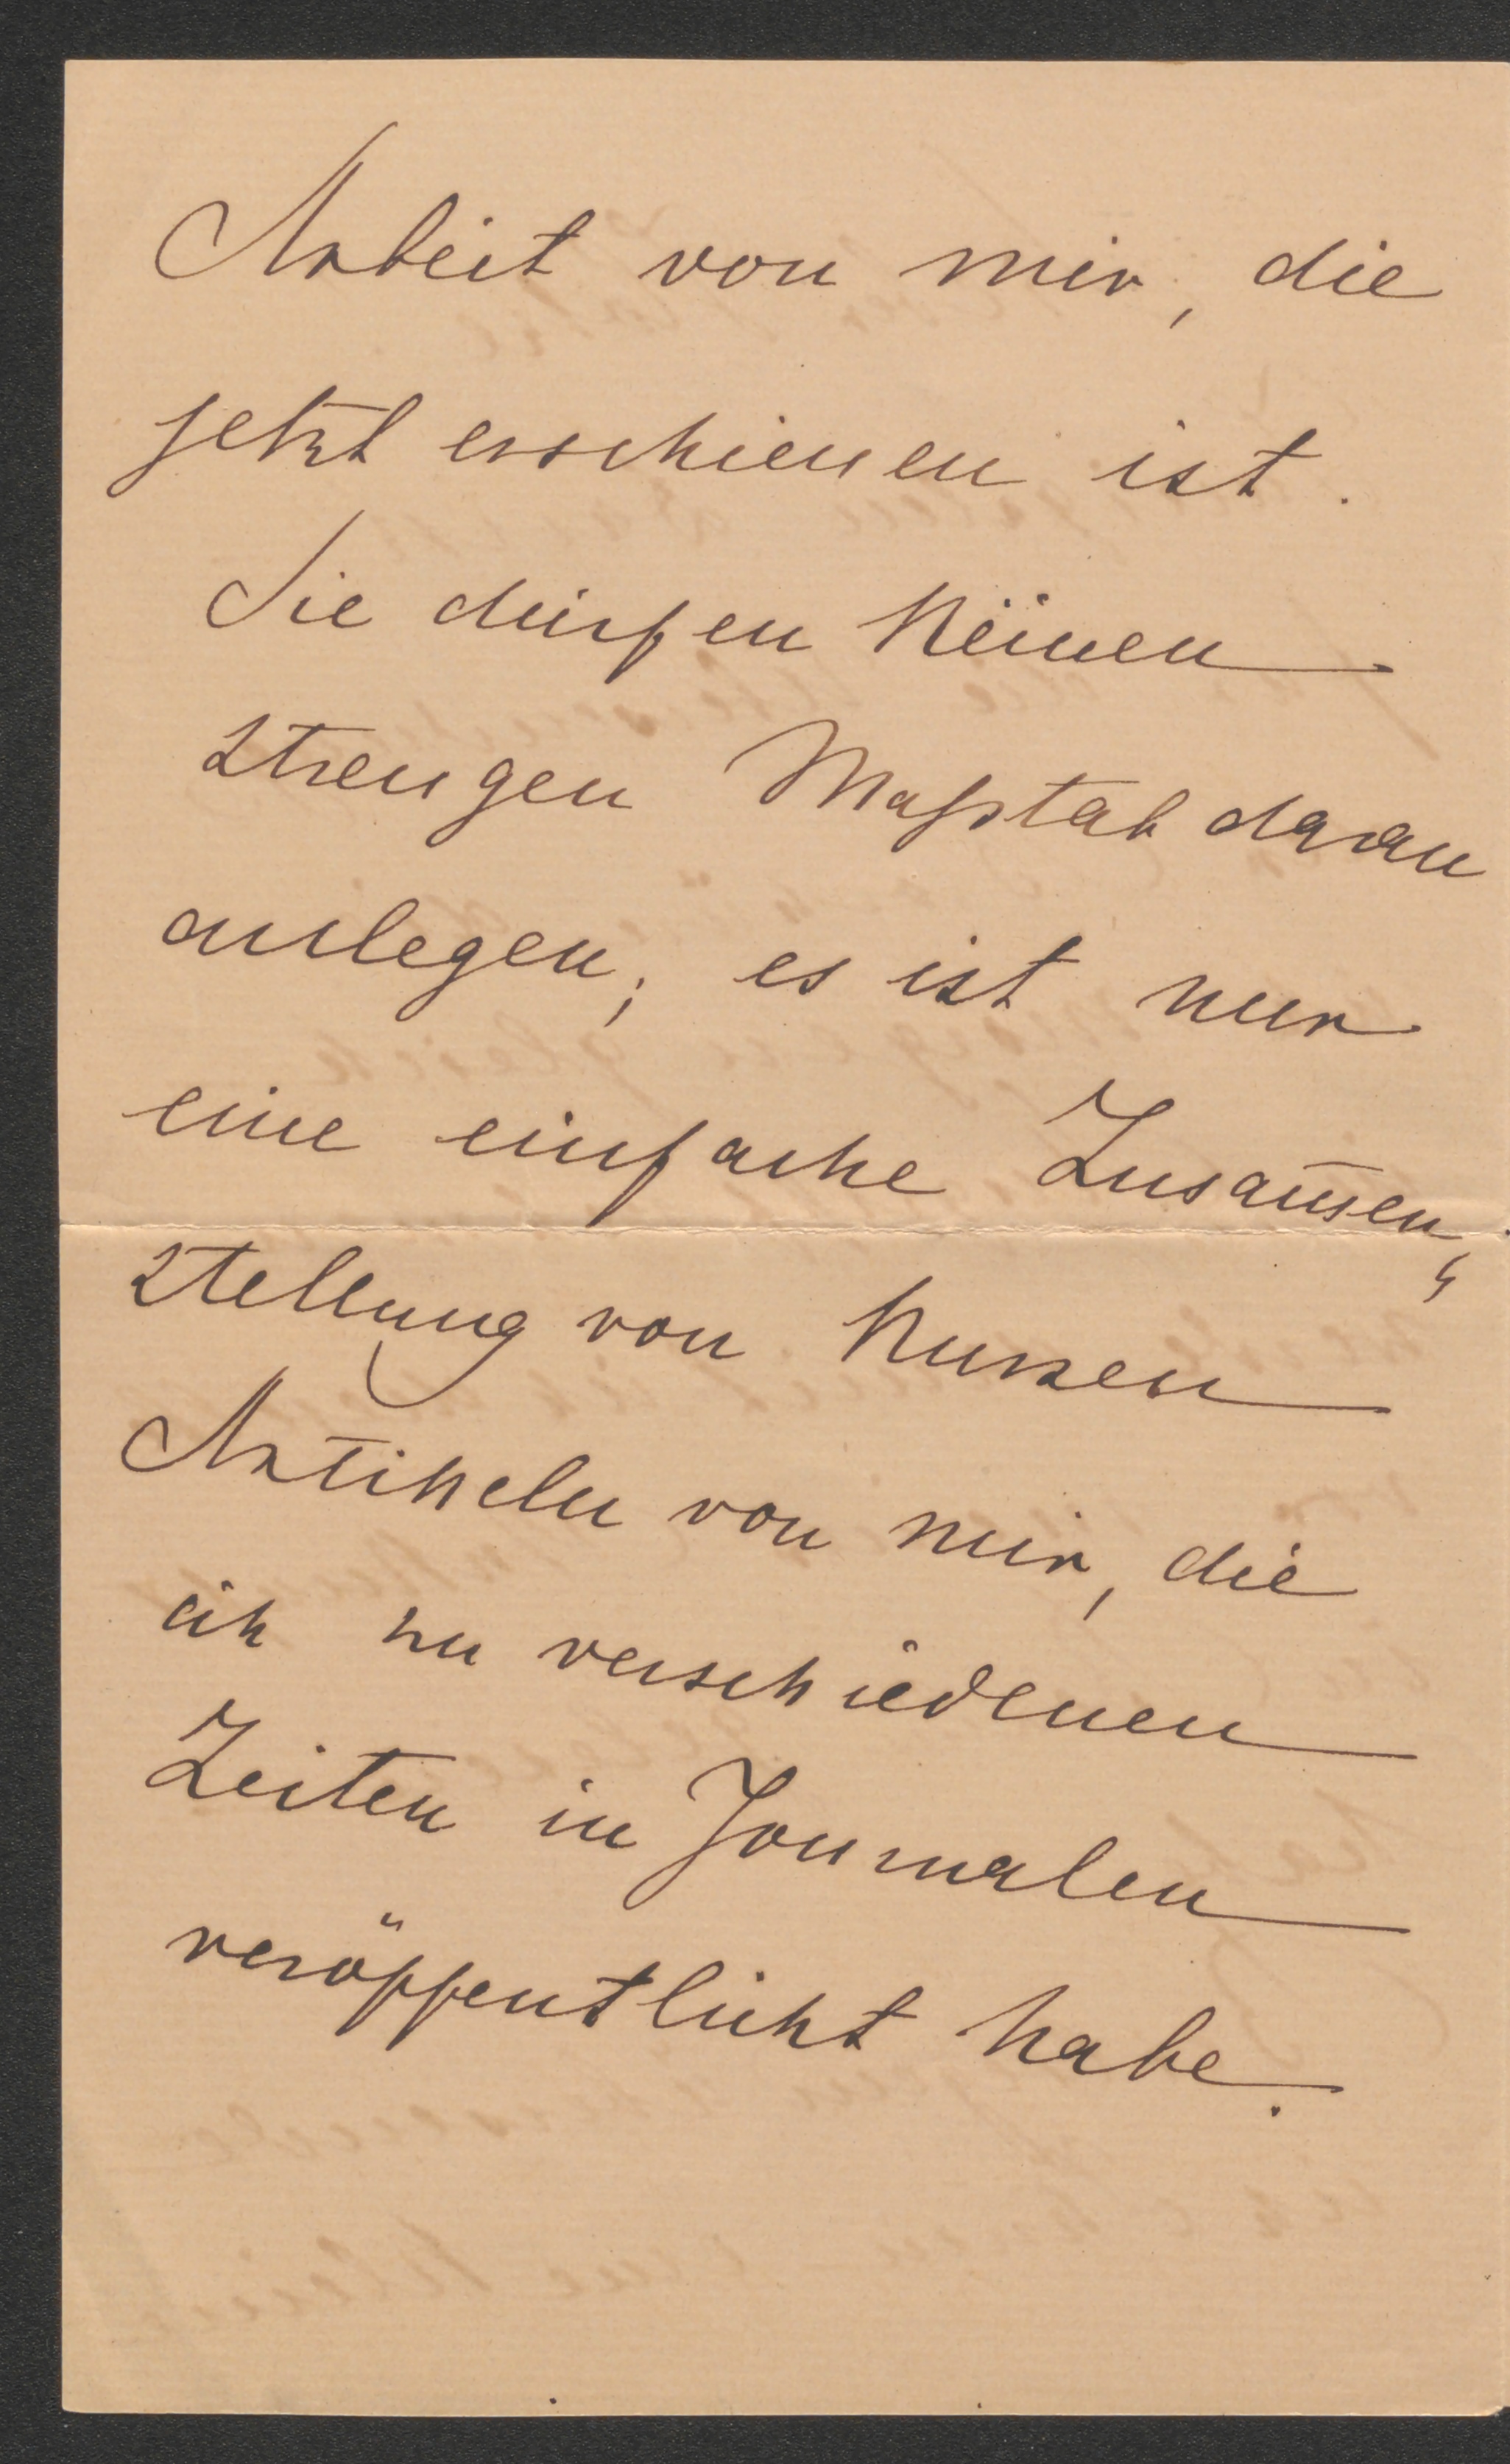 Arbeit von mir, die
jetzt erschienen ist.
Sie dürfen keinen
strengen Maßstab daran
anlegen; es ist nur
eine einfache Zusam̄en-
stellung von kurzen
Artikeln von mir, die
ich zu verschiedenen
Zeiten in Journalen
veröffentlicht habe.